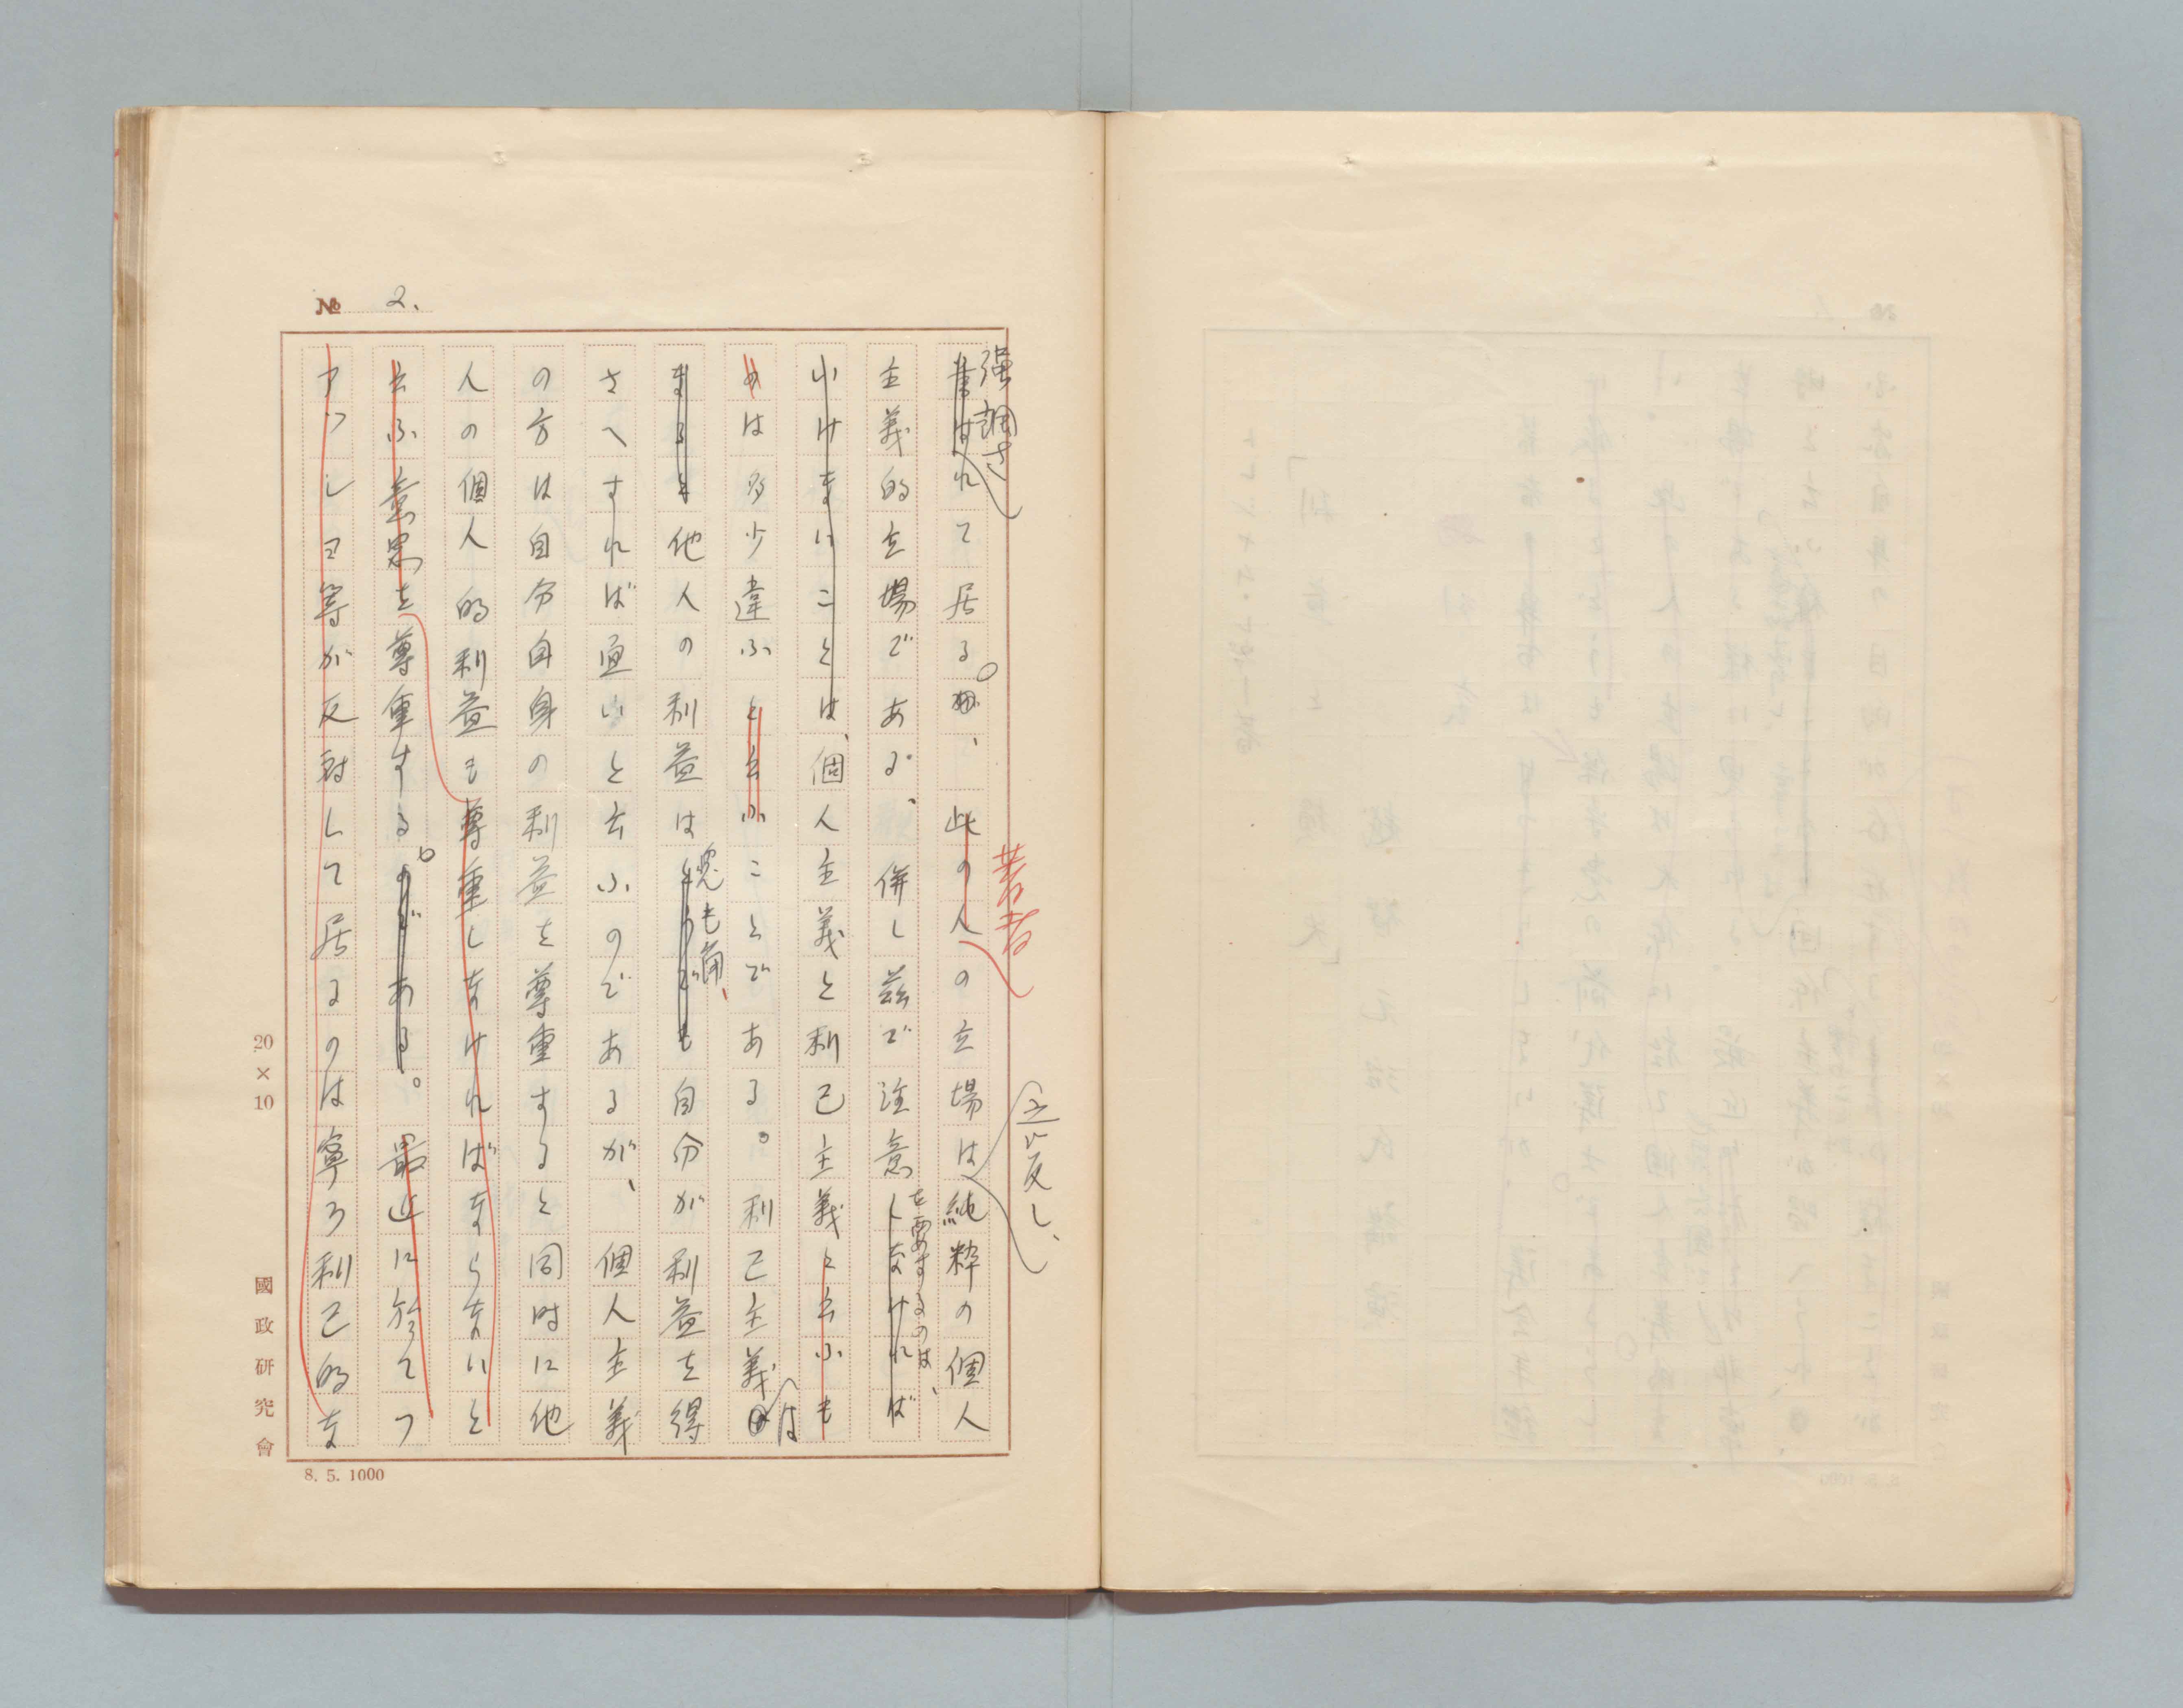 № 2.
強調さ
書はれて居る。が、此の人の立場は純粋の個人
著者
之に反し、
主義的立場である、併し茲で注意しなければ
を要するのは、
いけまいことは、個人主義と利己主義と云ふも
のは多少違ふと云ふことである。利己主義の
は
まるで他人の利益はどうでも自分が利益を得
兎も角、
さへすれば宜いと云ふのであるが、個人主義
の方は自分自身の利益を尊重すると同時に他
人の個人的利益も尊重しなければならないと
云ふ意思を尊重する。のである。最近に於てフ
アツシヨ等が反対して居るのは寧ろ利己的な
20×10
國政研究會
8. 5. 1000